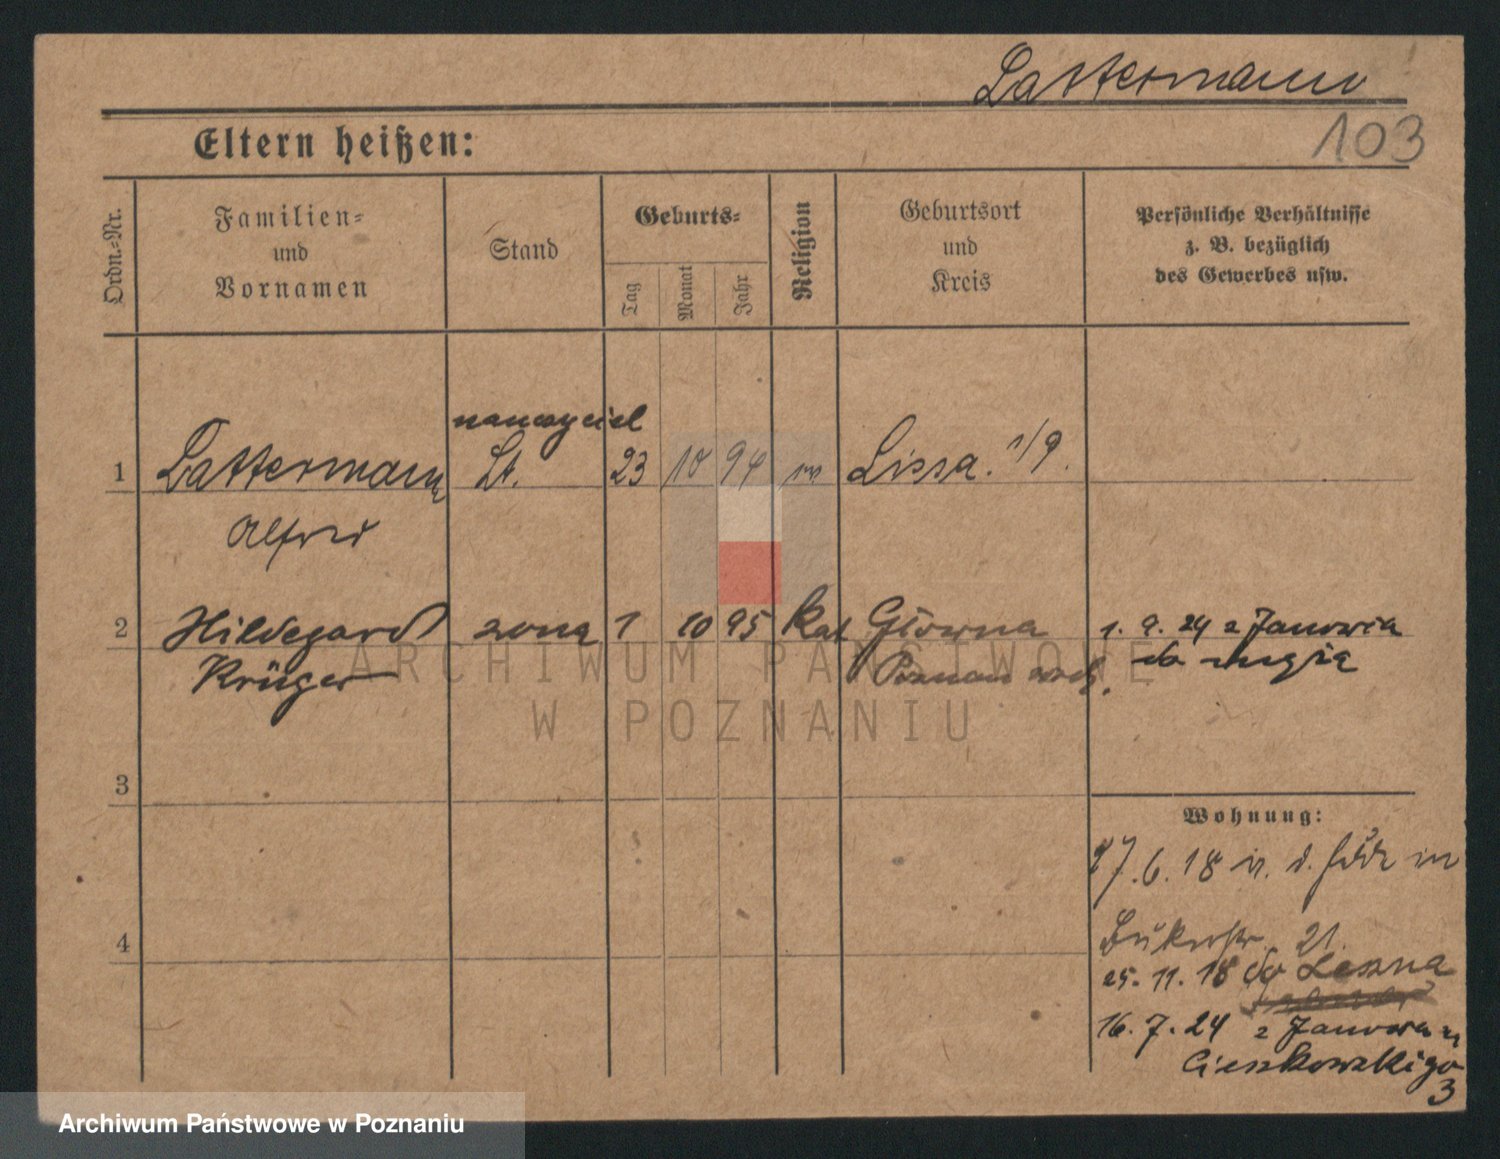 Lattermann
103
Eltern heißen:
Ordn.-Nr.
Familien-
und
Vornamen
Stand
Geburts-
Tag
Monat
Jahr
Religion
Geburtsort
und
Kreis
Persönliche Verhältnisse
z. B. bezüglich
des Gewerbes usw.
nauczyciel
1 Lattermann Lt. 23 10 94 Lissa.
Alfred
2 Hildegard żona 1 10 95 Kat Główna 1. 9. 24 z Janowca
Krüger Poznań wsch. do męża
ARCHIWUM PAŃSTWOWE
W POZNANIU
3
Wohnung:
27.6.18
4
21.
25. 11. 18 do Leszna
16. 7. 24 z Janowca
Cieszkowskiego
3
Archiwum Państwowe w Poznaniu